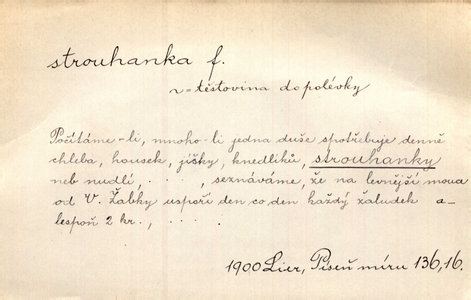 strouhanka f.
~ = těstovina do polévky
Počítáme-li, mnoho-li jedna duše spotřebuje denně
chleba, housek, jíšky, knedlíků, strouhanky
neb nudlí, . . . , seznáváme, že na levnější mouce
od V. Žabky uspoří den co den každý žaludek a-
lespoň 2 kr., . . . .
1900 Lier, Píseň míru 136, 16.